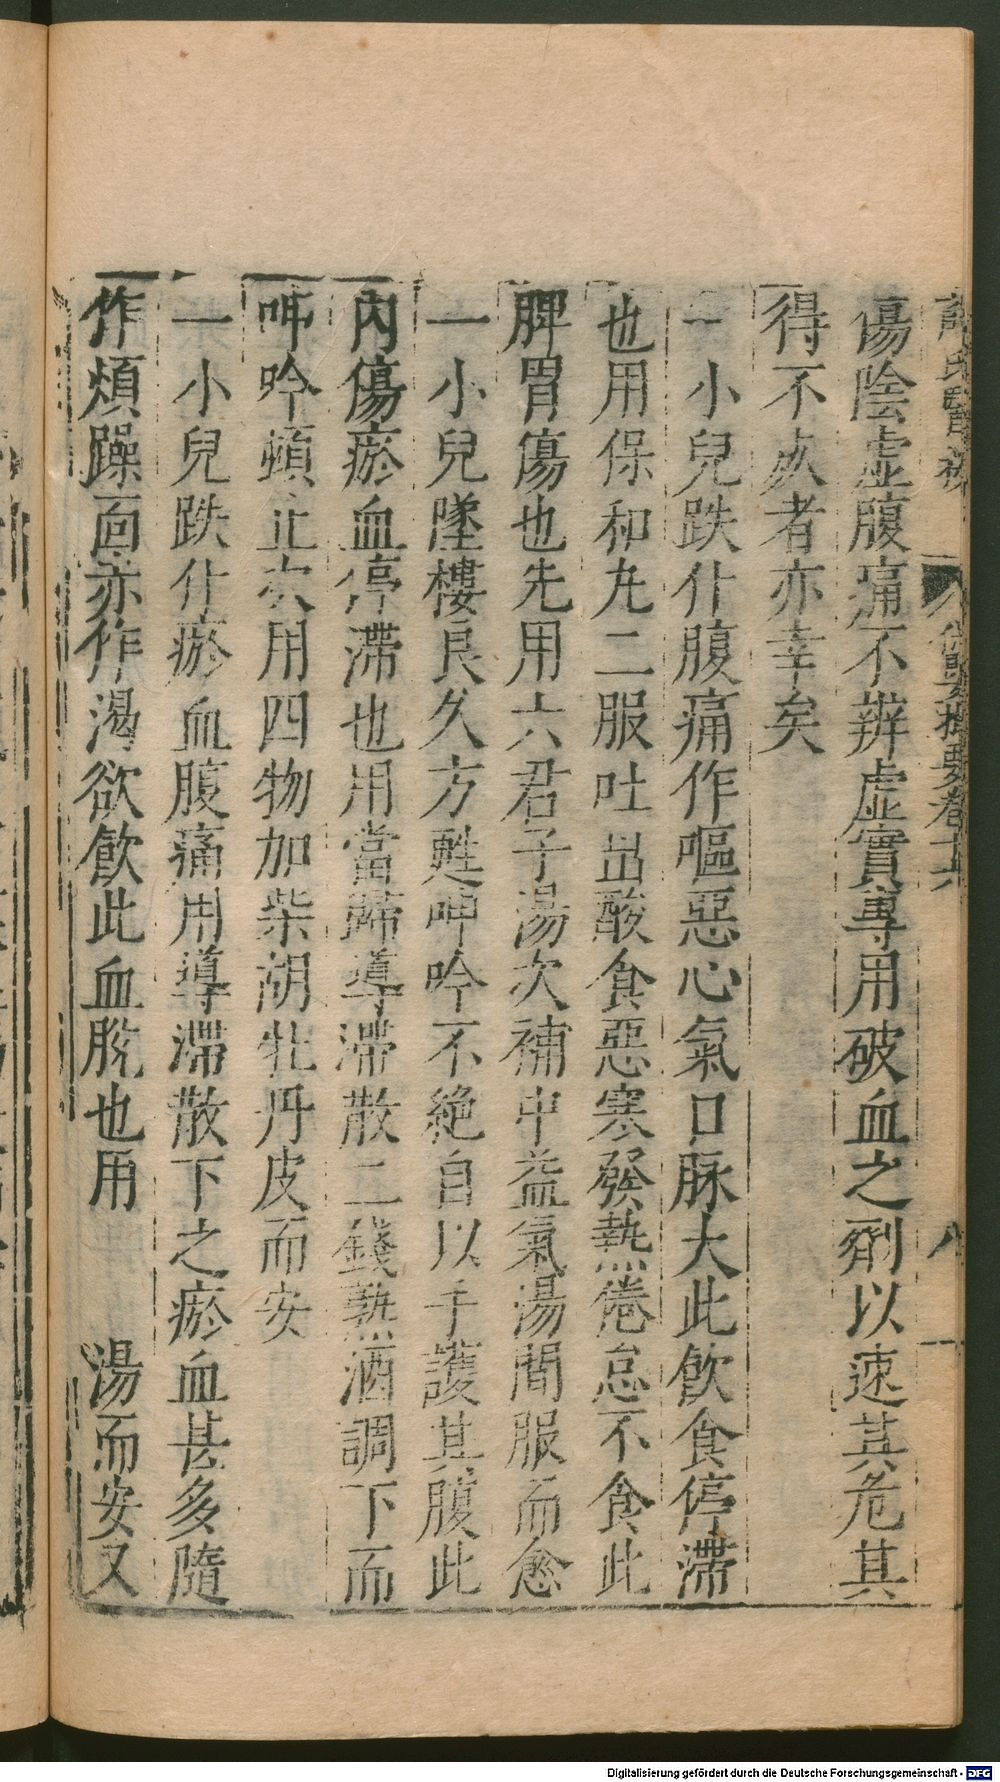 薛氏醫按 保嬰撮要卷十六 八
傷陰虛腹痛不辨虛實專用破血之劑以速其危其
得不死者亦幸矣
一小兒跌仆腹痛作嘔惡心氣口脉大此飲食停滯
也用保和丸二服吐出酸食惡寒發熱倦怠不食此
脾胃傷也先用六君子湯次補中益氣湯間服而愈
一小兒墜樓良久方甦呻吟不絶自以手護其腹此
內傷瘀血停滯也用當歸導滯散二錢熱酒調下而
呻吟頓止次用四物加柴胡牡丹皮而安
一小兒跌仆瘀血腹痛用導滯散下之瘀血甚多隨
作煩躁面赤作渴欲飲此血脫也用 湯而安又
Digitalisierung gefördert durch die Deutsche Forschungsgemeinschaft - DFG